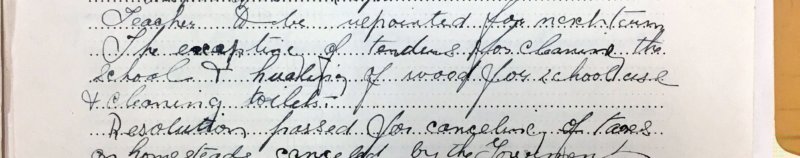 Teacher to be repointed for next turm
The excaptice of tenders for cleaning the
school & hualing of wood for school use
& cleaning toilets.
Resolution passed for canceling of taxes
on homesteads canceled by the Goverment